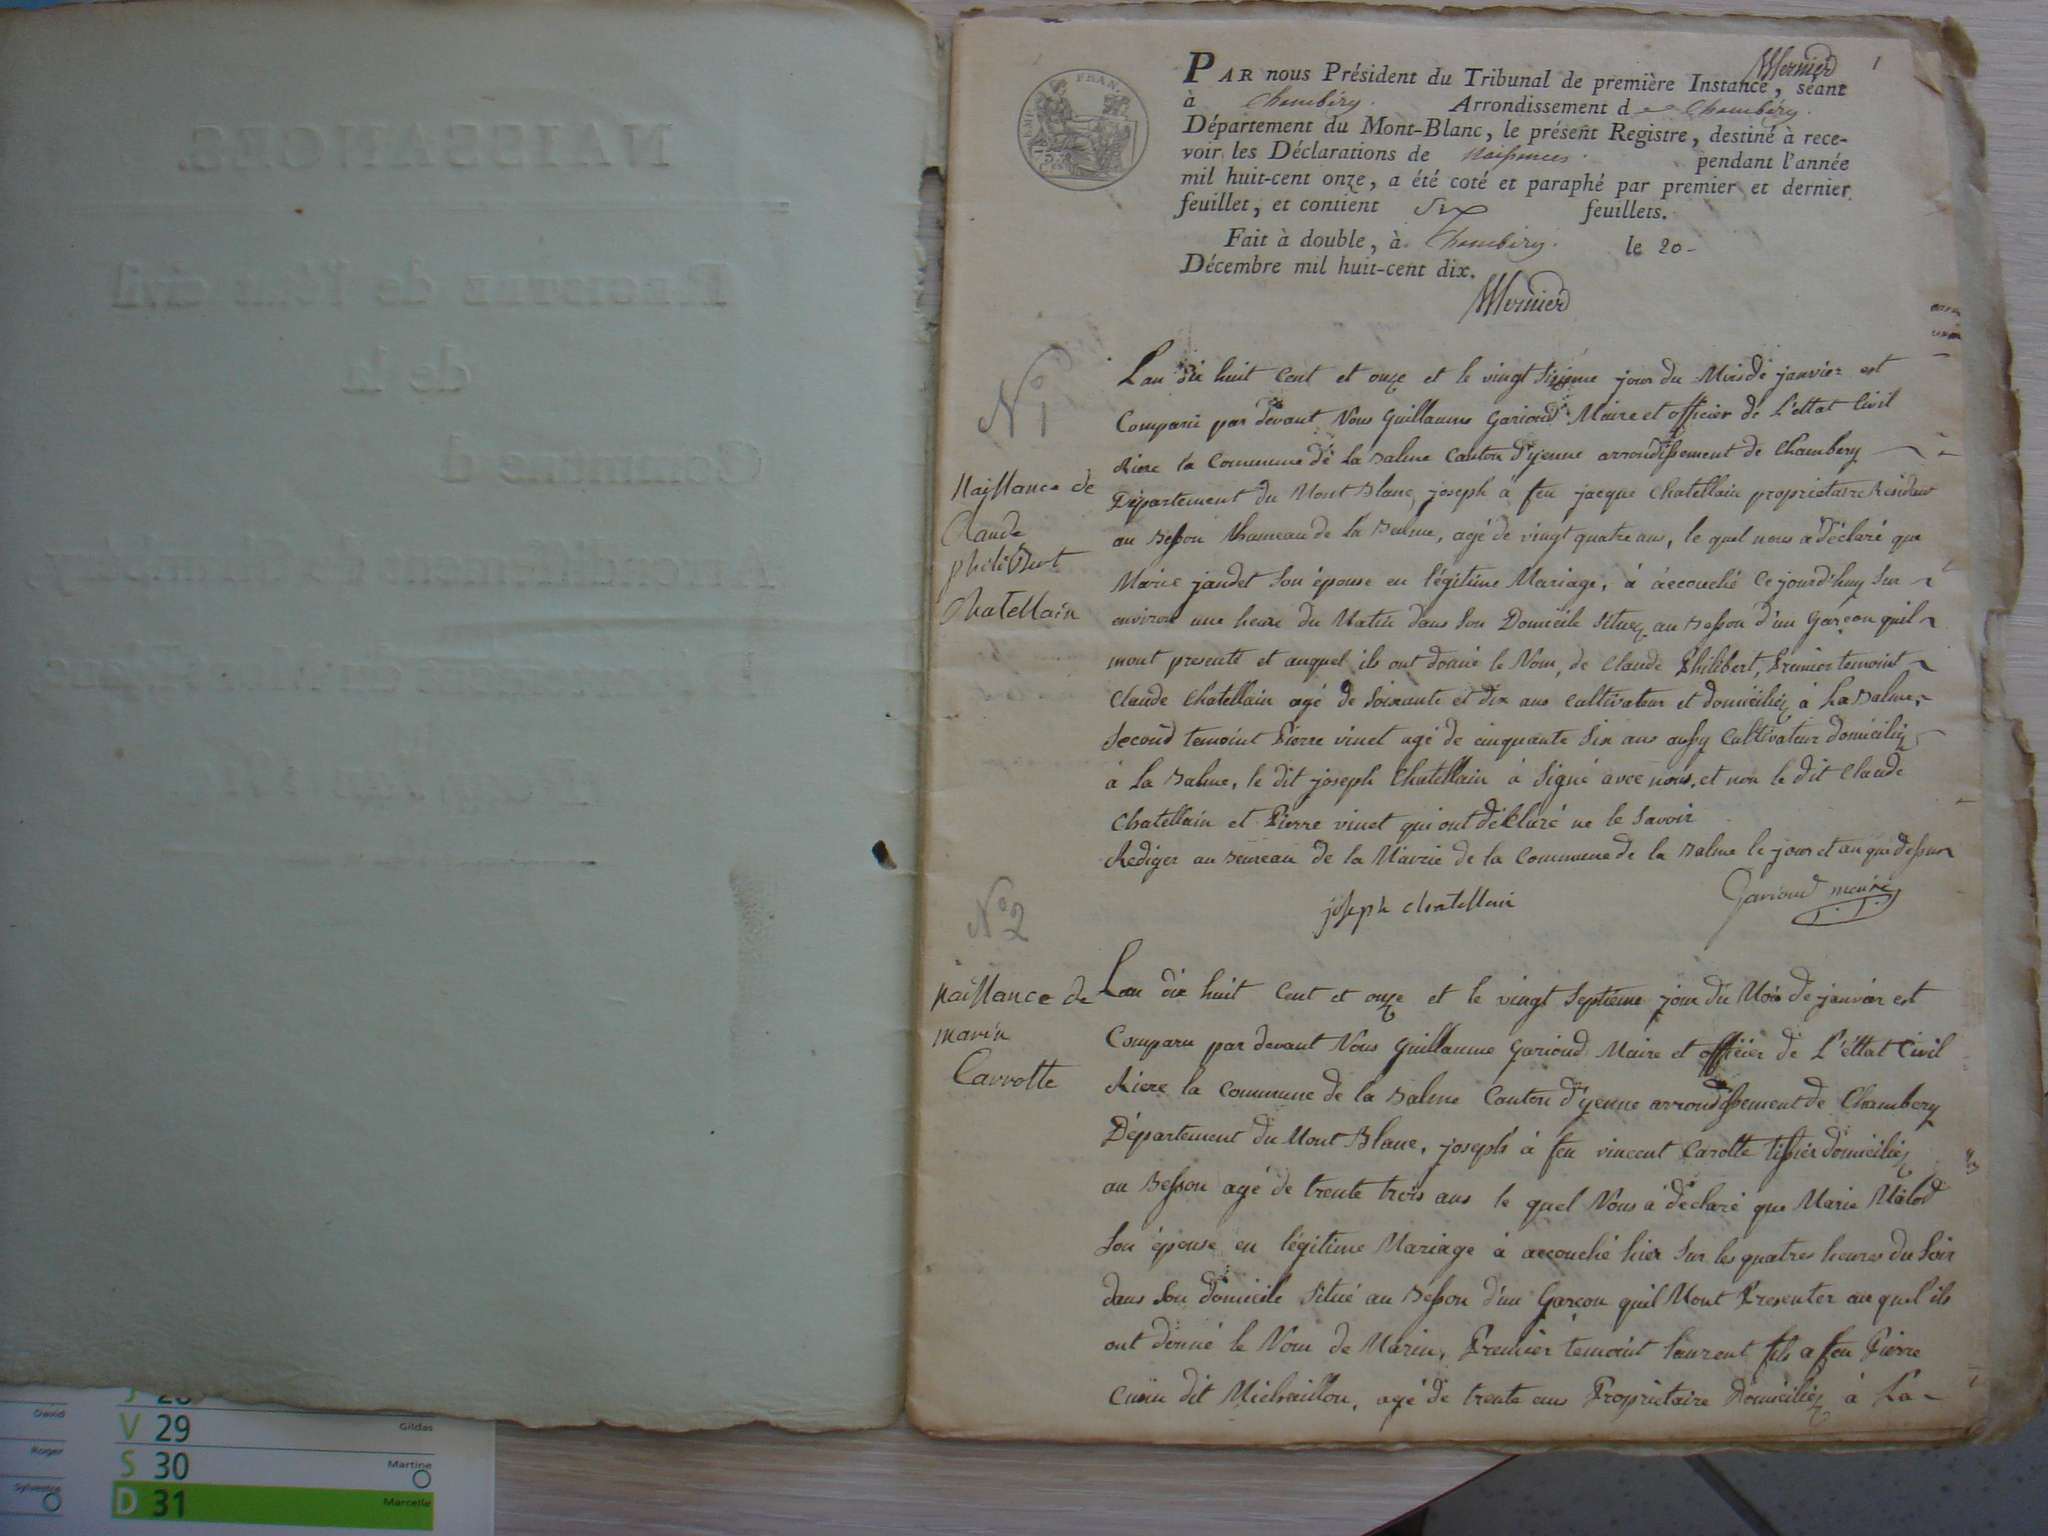 NAISSANCES.
REGISTRE de l'état civil
de la
Commune d
Arrondissement de Chambéry
Département du Mont-Blanc
EMPIRE FRANÇAIS
Mernier
1
PAR nous Président du Tribunal de première Instance, séant
à Chambéry. Arrondissement de Chambéry.
Département du Mont-Blanc, le présent Registre, destiné à rece-
voir les Déclarations de Naissances. pendant l'année
mil huit-cent onze, a été coté et paraphé par premier et dernier
feuillet, et contient Six feuillets.
Fait à double, à Chambéry. le 20-
Décembre mil huit-cent dix.
Mernier
N° 1
Naissance de
Claude
philibert
Chatellain
Lan dix huit Cent et onze et le vingt Sixieme jour du Mois de janvier est
Comparu par devant Nous Guillaume Garioud Maire et officier de L'ettat Civil
Riere la Commune de La Balme Canton d'yenne arrondissement de Chambery
Département du Mont Blanc, joseph à feu jacque Chatellain proprietaire Residant
au Besson hameau de La Balme, agé de vingt quatre ans, le quel nous a déclaré que
Marie jandet Son épouse en légitime Mariage, à accouché Ce jourd'huy Sur
environ une heure du Matin dans Son Domicile Situez au Besson d'un Garçon quil
mont presenté et auquel ils ont donné le Nom, de Claude Philibert, Premier temoint
Claude Chatellain agé de Soixante et dix ans Cultivateur et domiciliez à La Balme,
Second temoint Pierre vinet agé de cinquante Six ans aussy Cultivateur domiciliez
à La Balme, le dit joseph Chatellain à Signé avec nous, et non le dit Claude
Chatellain et Pierre vinet qui ont décluré ne le Savoir
Rediger au Beureau de la Mairie de la Commune de la Balme le jour et an que dessus
joseph chatellain
Garioud maire
N° 2
naissance de
marin
Carrotte
Lan dix huit Cent et onze et le vingt Septieme jour du Mois de janvier est
Comparu par devant Nous Guillaume Garioud Maire et officier de L'éttat Civil
Riere la Commune de la Balme Canton d'yenne arrondissement de Chambery
Département du Mont Blanc, joseph à feu vincent Carotte tissier domiciliez
au Besson agé de trente trois ans le quel Nous à déclaré que Marie Malod
Son épouse en légitime Mariage à accouché hier Sur les quatres heures du Soir
dans Son domicile Situé au Besson d'un Garcon quil Mont Presenter au quel ils
ont donné le Nom de Marin, Premier temoint laurent fils a feu Pierre
Cusin dit Michaillon, agé de trente ans Proprietaire Domiciliez à La
David
Roger
Sylvestre
J 28
V 29 Gildas
S 30 Martine
D 31 Marcelle